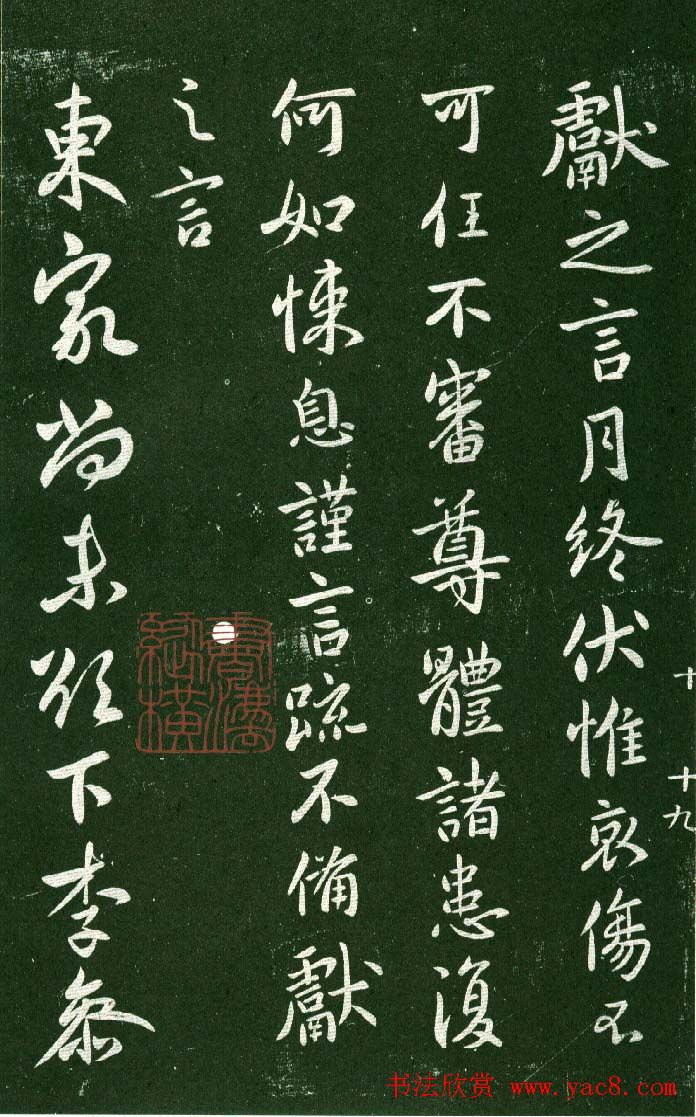 獻之言月終伏惟哀傷不
可任不審尊體諸患復
何如悚息謹言疏不備獻
之言
東家尚未欲下李參
十
十九
書灋
縱橫
书法欣赏 www.yac8.com